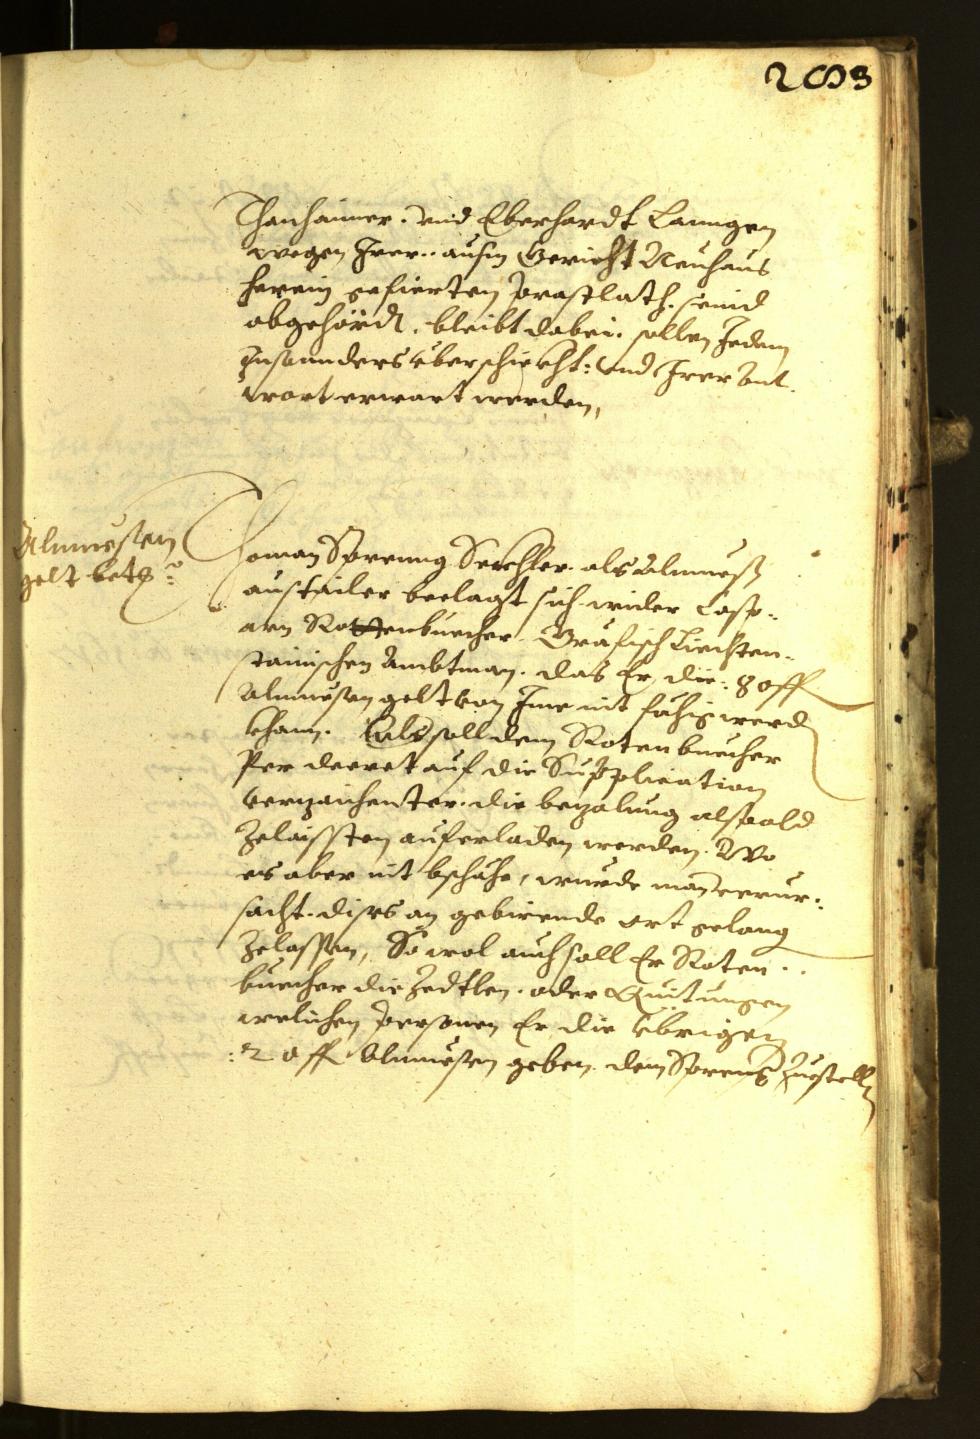 203
Thanhaimer. vnd Eberhardt Lanngen
wegen Irer ausm Gericht Neuhaus
herein gefierten seind
abgehördt, bleibt dabei. sollen Jedem
Insonnders überschickht: vnd Irer Ant
wort erwart werden,
Almuesen
gelt betr:
Roman Sprenng Seckhler. als Almues
austailer beclagt sich wider Casp:
arn Rottenbuecher Gräflisch Liechten¬
stainischen Ambtman. das Er die: 8 aff
Almuesen gelt von Ime nit fähig werd
khann. Also soll dem Rotenbuecher
Per decret auf die Supplication
verzaichenter. die bezalung alspald
Zelaissten auferladen werden. Wo
es aber nit bschähe, wurde man verur¬
sacht. diss an gebirende ort gelang
Zelassen, So wol auch soll Er Roten¬
buecher die Zedtlen. oder Quitungen
welichen personen Er die übrigen
: 2 aff Almuesen geben. dem Spreng Zuestell